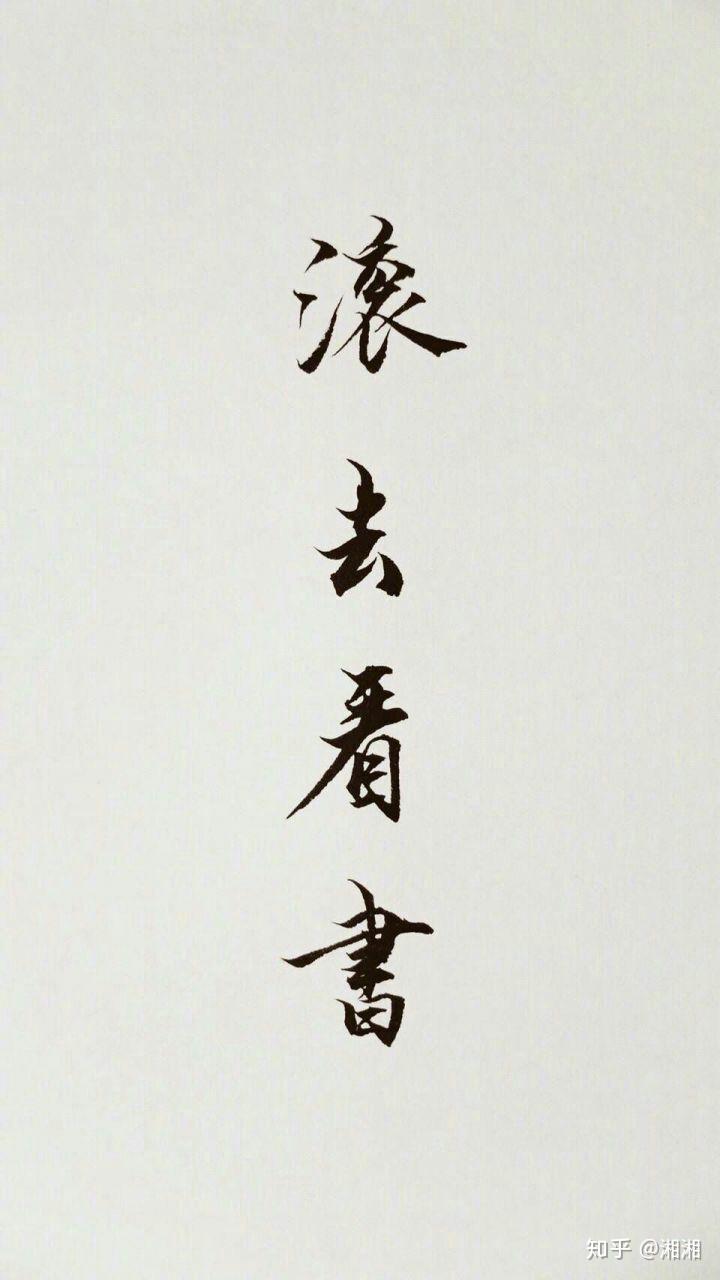 滚去看書
知乎 @湘湘